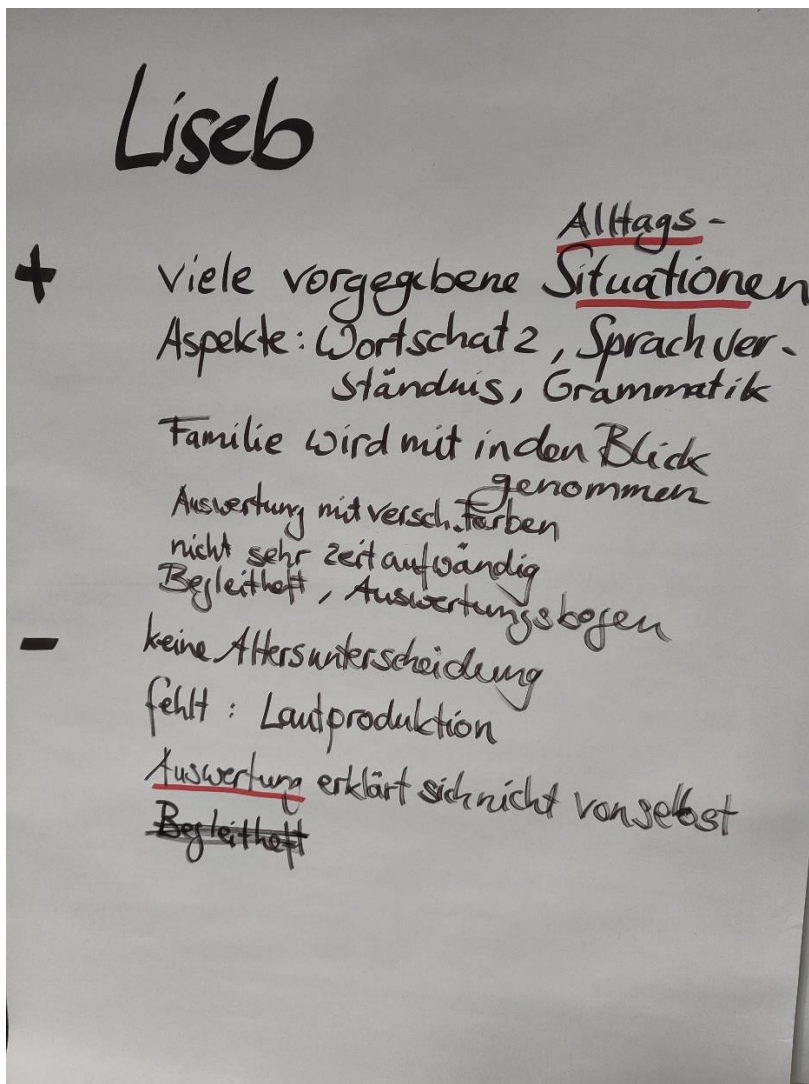 Liseb
Alltags-
+ Viele vorgegebene Situationen
Aspekte: Wortschatz, Sprachver-
ständnis, Grammatik
Familie wird mit in den Blick
genommen
Auswertung mit versch. Farben
nicht sehr zeitaufwändig
Begleitheft, Auswertungsbogen
- keine Altersunterscheidung
fehlt: Lautproduktion
Auswertung erklärt sich nicht von selbst
Begleitheft